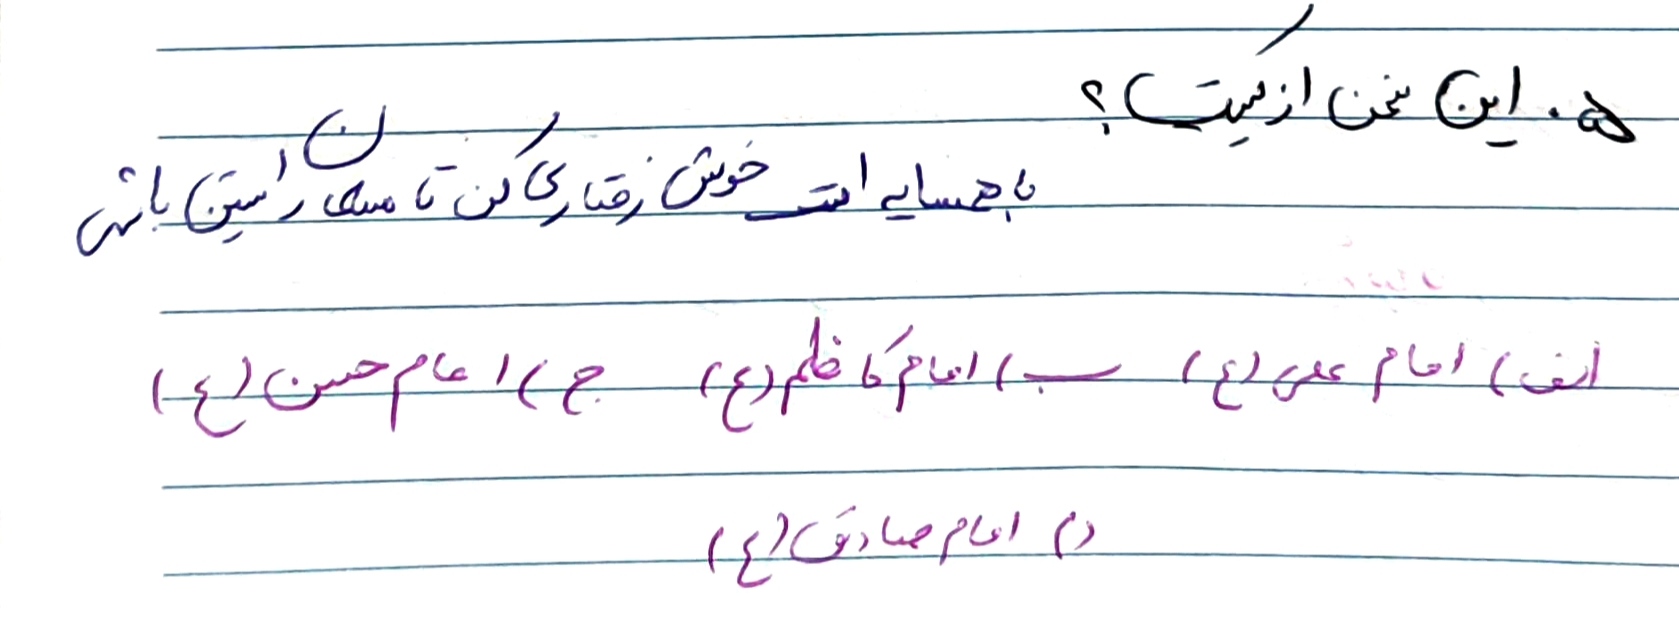 ۵. این سخن از کیست؟
با همسایه ات خوش رفتاری کن تا مسلمان راستین باشی
الف) امام علی (ع) ب) امام کاظم (ع) ج) امام حسین (ع)
د) امام صادق (ع)